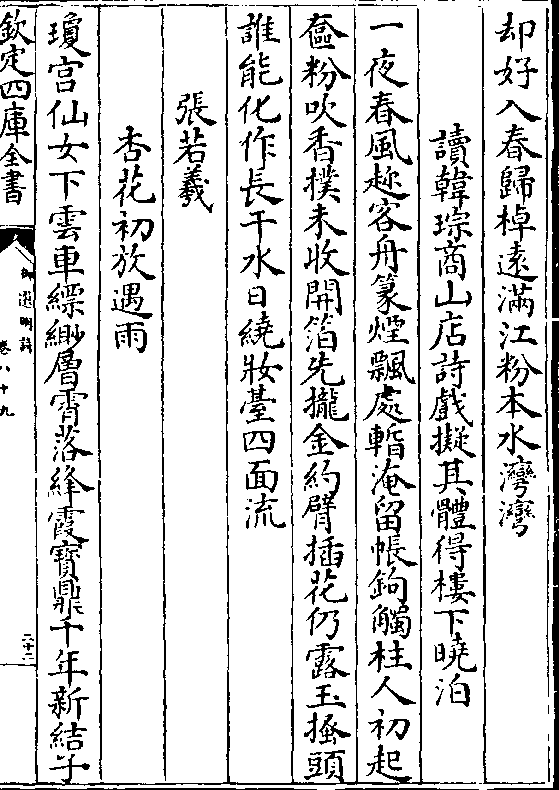 却好入春歸棹遠滿江粉本水灣灣
讀韓琮商山店詩戲擬其體得樓下曉泊
一夜春風趂客舟篆煙飄處暫淹留帳鉤觸柱人初起
奩粉吹香撲未收開箔先攏金約臂插花仍露玉搔頭
誰能化作長干水日繞妝臺四面流
張若羲
杏花初放遇雨
瓊宮仙女下雲車縹緲層霄落絳霞寶鼎千年新結子
欽定四庫全書
御選明詩
卷八十九
二十二